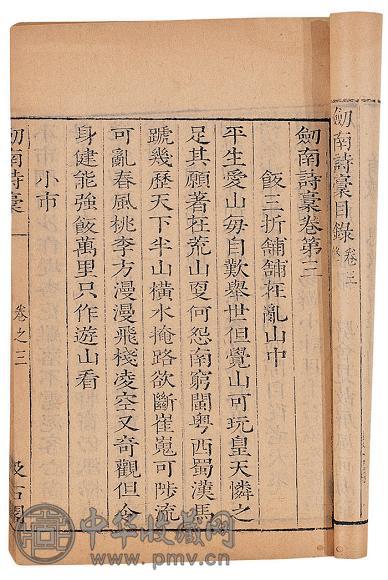 劒南詩稾目録 卷三
劒南詩稾卷第三
飯三折舖舖在亂山中
平生愛山每自歎舉世但覺山可玩皇天憐之
足其願著在荒山更何怨南窮閩粤西蜀漢馬
蹏幾歷天下半山橫水掩路欲斷崔嵬可陟流
可亂春風桃李方漫漫飛棧凌空又奇觀但令
身健能強飯萬里只作遊山看
小市
劒南詩稾
卷之三
中华收藏网
www.pmv.cn